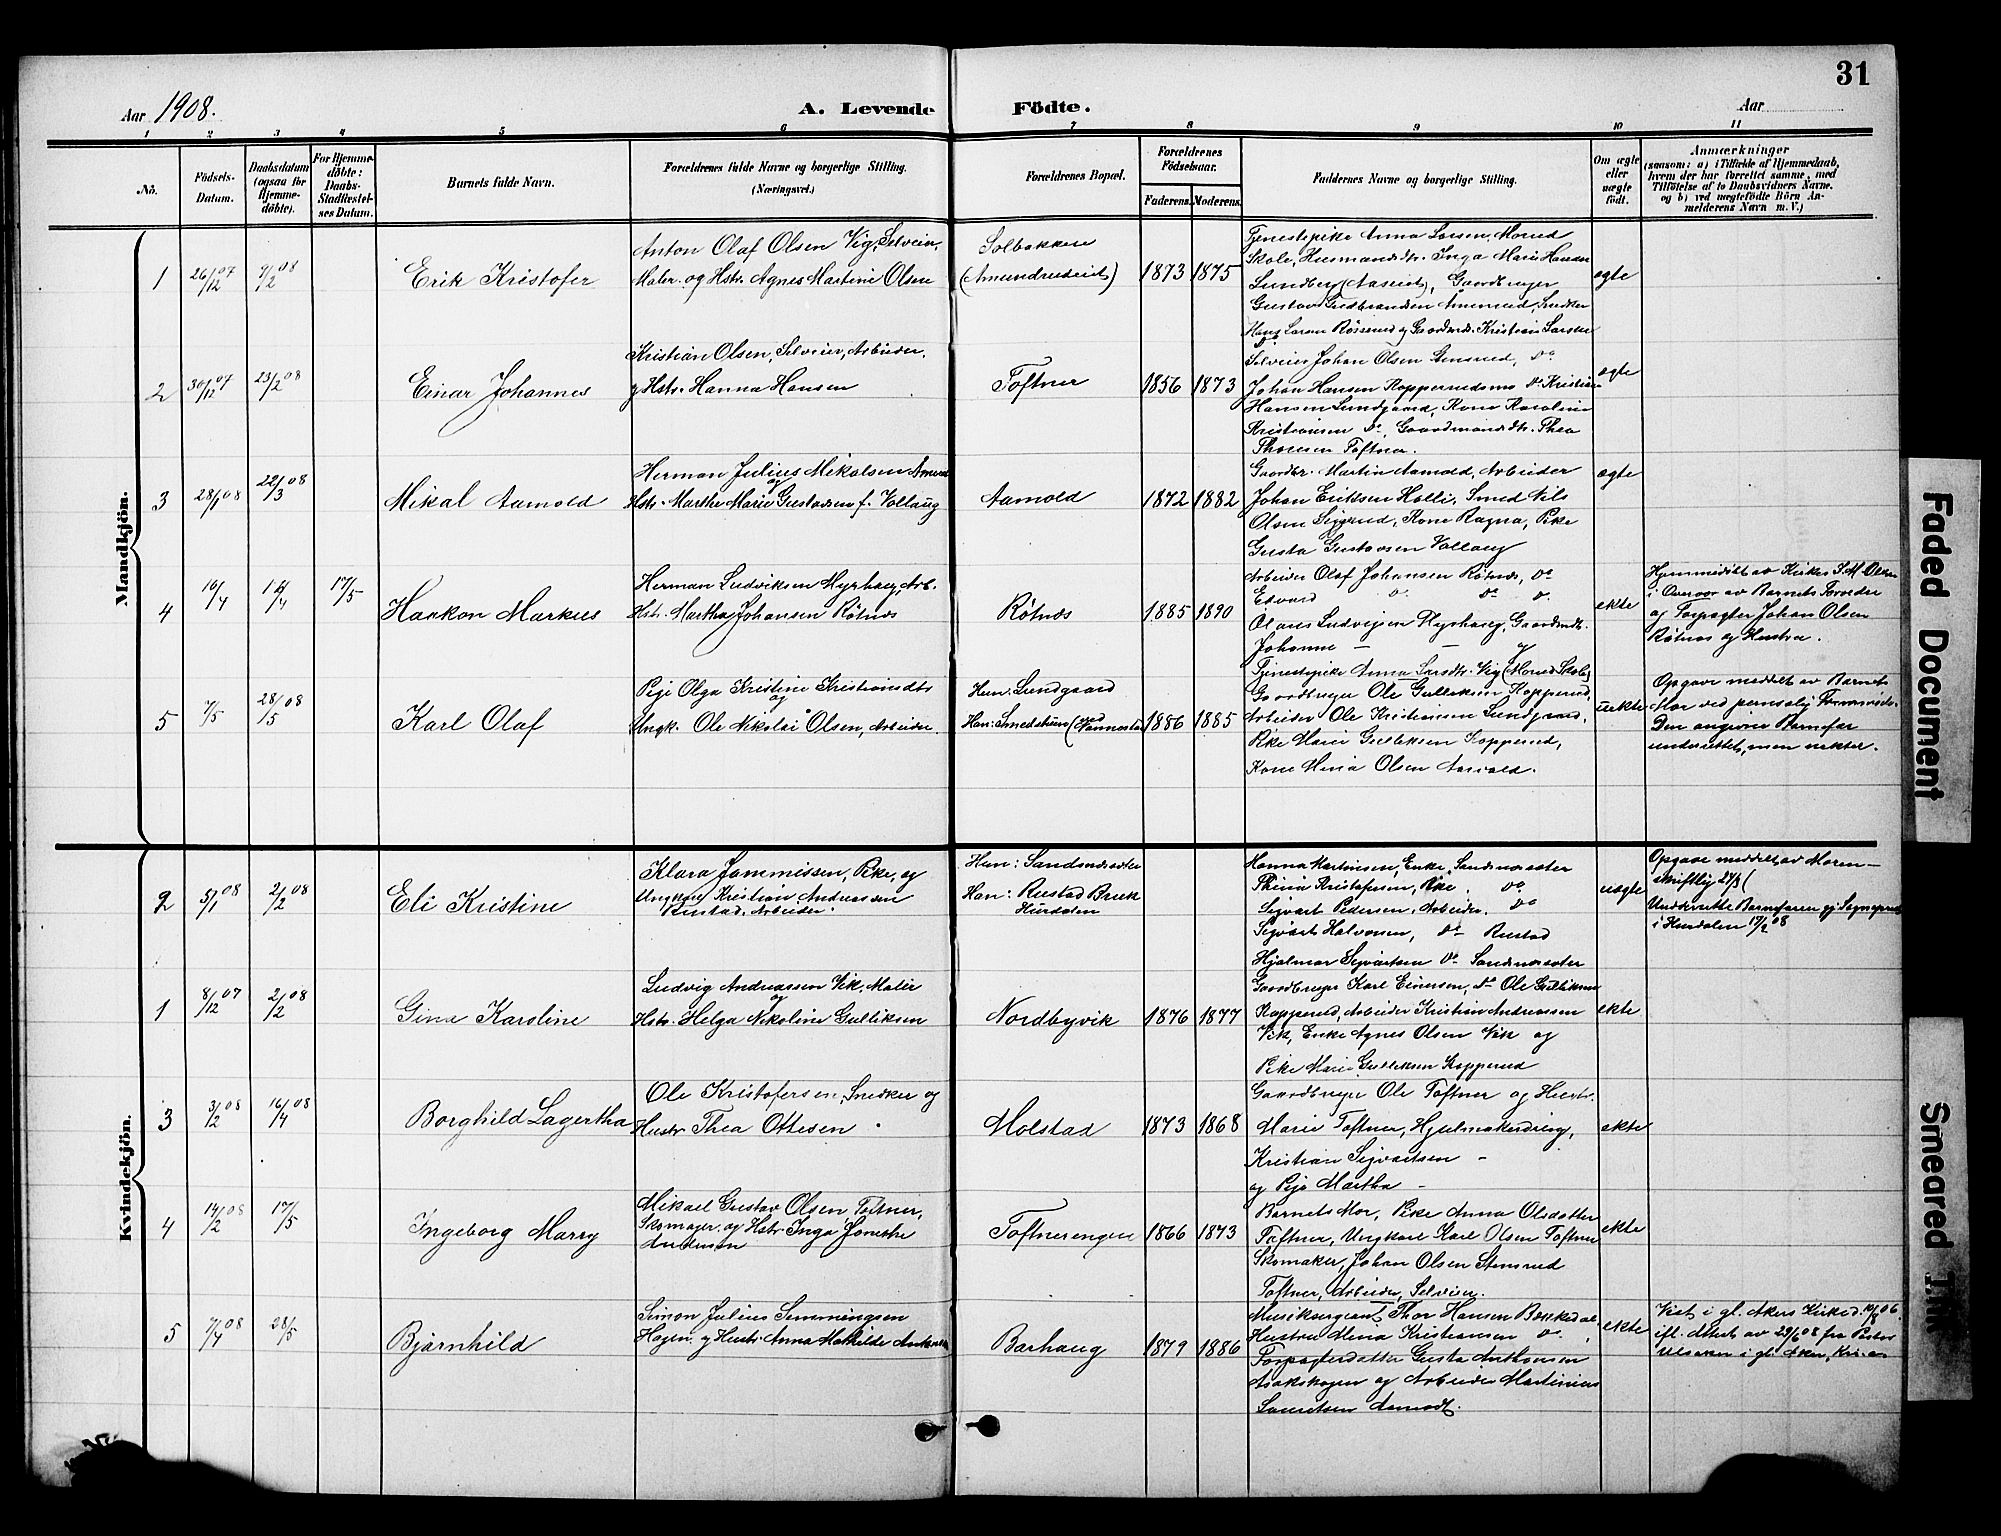 31
Aar 1908.
A. Levende Födte.
Aar
1 2 3 4 5 6 7 8 9 10 11
No.
Födsels-Datum.
Daabsdatum (ogsaa for Hjemme-döbte).
For Hjemme-döbte: Daabs-Stadfæstel-ses Datum.
Barnets fulde Navn.
Forældrenes fulde Navne og borgerlige Stilling. (Næringsvei.)
Forældrenes Bopæl.
Forældrenes Födselsaar.
Faderens. Moderens.
Faddernes Navne og borgerlige Stilling.
Om ægte eller uægte födt.
Anmærkninger
(saasom: a) i Tilfælde af Hjemmedaab, hvem der har forrettet samme, med Tilföielse af to Daabsvidners Navne, og b) ved uægtefödte Börn An-melderens Navn m. V.)
Mandkjön.
1 26/12 07 9/2 08
Erik Kristofer
Anton Olaf Olsen Vig, Selveier,
Maler og Hstr. Agnes Martine Olsen
Solbakken
(Amundrudeiet)
1873 1875
Tjenestepike Anna Larsen, Mored
Skole, Husmandsdtr. Inga Marie Hansen
Lundby (Aaseiet), Gaardbruger
Gustav Gudbrandsen Amerud, Snedker
Hans Larsen Røsserud og Gaardmds. Kristian Larsen
ægte
2 30/12 07 23/2 08
Einar Johannes
Kristian Olsen, Selveier, Arbeider,
g Hstr. Hanna Hansen
Toftner
1856 1873
Selveier Johan Olsen Stensrud, Do
Johan Hansen Kopperudsmo Do Kristian
Hansen Lundgaard, Kone Karoline
Kristiansen Do, Gaardmandsdtr. Thea
Thoresen Toftner.
ægte
3 28/1 08 22/3 08
Mikal Aamold
Herman Julius Mikalsen Amerud
og
Hstr. Marthe Marie Gustadsen f. Vollaug
Aamold
1872 1882
Gaardbr. Martin Aamold, Arbeider
Johan Eriksen Holli, Smed Nils
Olsen Sigerud, Kone Ragna, Pike
Gusta Gustavsen Vollaug
ægte
4 16/4 17/5
Haakon Markus
Herman Ludviksen Myrhaug, Arb.
Hstr. Martha Johansen Rötnes
Rötnes
1885 1890
Arbeider Olaf Johansen Rötnes, Do
Edvard Do Do Do
Olaves Ludvigsen Myrhaug, Gaardmdtr.
Johanne — — g
ekte
Hjemmedöbt av Kirkes. J. M. Olsen
i Overvær av Barnets Forældre
og Forpagter Johan Olsen
Rötnes og Hustru.
5 7/5 28/5 08
Karl Olaf
Pige Olga Kristine Kristiansdtr
og
Ungk. Ole Nikolai Olsen, Arbeider
Hun: Lundgaard
Han: Smedstuen (ved Nannestad)
1886 1885
Tjenestepike Anna Larsdtr. Vig (Mored Skole)
Gaardbruger Ole Gulliksen Kopperud,
Arbeider Ole Kristiansen Lundgaard,
Pike Marie Gulliksen Kopperud,
Kone Mina Olsen Aasvald.
uekte
Opgave meddelt av Barnets
Mor ved personlig Fremmöde.
Den angivne Barnefar
underrettet, men nekter.
Kvindekjön.
2 5/1 08 2/2 08
Eli Kristine
Klara Jammissen, Pike, og
Ungkar Kristian Andreassen
Rustad, Arbeider.
Hun: Sandsnæsseter
Han: Rustad Bruk
Hurdalen
Hanna Martinsen, Enke, Sandsnæsseter
Thina Kristofersen, Pike. Do
Sigvart Pedersen, Arbeider. Do
Sigvart Halvorsen, Do Rustad
Hjalmar Sigvartsen Do Sandnæsseter
uægte
Opgave meddelt av Moren —
skriftlig 27/1
Underrettet Barnefaren gj. Sogneprest
i Hurdalen 17/2 08
1 8/12 07 2/2 08
Gina Karoline
Ludvig Andreassen Vik, Maler
og
Hstr. Helga Nikoline Gulliksen
Nordbyvik
1876 1877
Gaardbruger Karl Einersen, Do Ole Gulliksen
Kopperud, Arbeider Kristian Andreassen
Vik, Enke Agnes Olsen Vik og
Pike Marie Gulliksen Kopperud
ekte
3 3/2 08 16/4 08
Borghild Lagertha
Ole Kristofersen, Snedker og
Hustr Thea Ottesen
Molstad
1873 1868
Gaardbruger Ole Toftner og Hustr.
Marie Toftner, Hjulmakerdreng,
Kristian Sigvartsen —
og Pige Martha —
ekte
4 14/2 08 17/5
Ingeborg Marry
Mikael Gustav Olsen Toftner,
Skomager, og Hstr Inga Jonette
Andersen
Toftnerengen
1866 1873
Barnets Mor, Pike Anna Olsdatter
Toftner, Ungkarl Karl Olsen Toftner
Skomaker, Johan Olsen Stensrud
Toftner, Arbeider, Selveier.
ekte
5 7/4 08 28/5
Bjarnhild
Simon Julius Simmingsen
Hagen g Hustr. Anna Mathilde
Barhaug
1879 1886
Musiksergeant Thor Hansen Bækkedal
Hustru Alma Kristiansen Do.
Forpagterdatter Gusta Anthonsen
Asakskogen og Arbeider Martinius
Lauritsen Aamodt.
ekte
Viet i gl. Akers Kirke d. 19/8 06
ifl. Attest av 29/6 08 fra Pastor
i gl. Aker, Kr.a
Faded Document
Smeared Ink